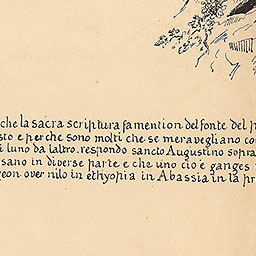 che la sacra scriptura fa mention del fonte del p
sto e perche sono molti che se meravegliano co
i luno da laltro. respondo sancto Augustino sopra
sano in diverse parte e che uno cio è ganges
eon over nilo in ethyopia in Abassia in la pr